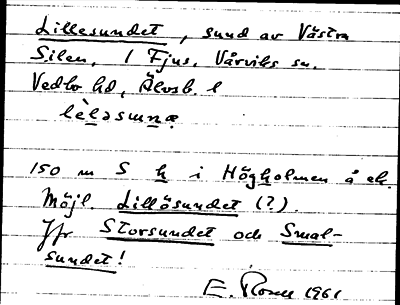 Lillesundet, sund av Västra
Silen, i Fjus, Vårviks sn.
Vedbo hd, Älvsb. l
lèləsunə
150 m S h i Högholmen å ek.
Möjl. Lillösundet (?).
Jfr Storsundet och Smal-
sundet!
E. 1961